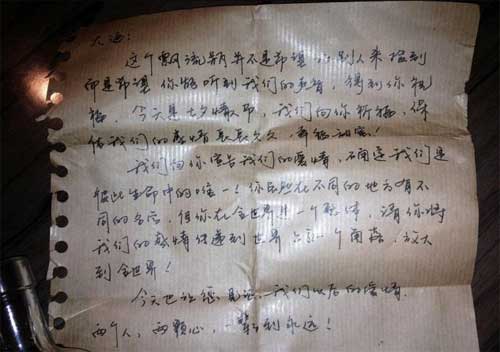 大海:
这个漂流瓶并不是希望让别人来捡到
而是希望你能听到我们的声音,得到你祝
福,今天是七夕,我们向你祈福,保
佑我们的感情长长久久,甜蜜!
我们向你宣告我们的爱情,不用是我们是
彼此生命中的唯一!你虽然在不同的地方有不
同的名字,但你在全世界是一个整体,请你将
我们的感情传递到世界每一个角落,放大
到全世界!
今天也让您见证我们以后的爱情.
两个人,两颗心,一辈到永远!